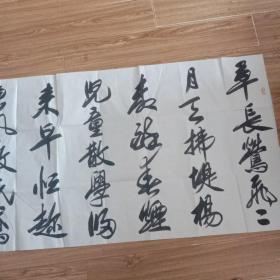 草長鶯飛二
月天拂堤楊
柳醉春煙
兒童散學歸
来早忙趁
風放紙